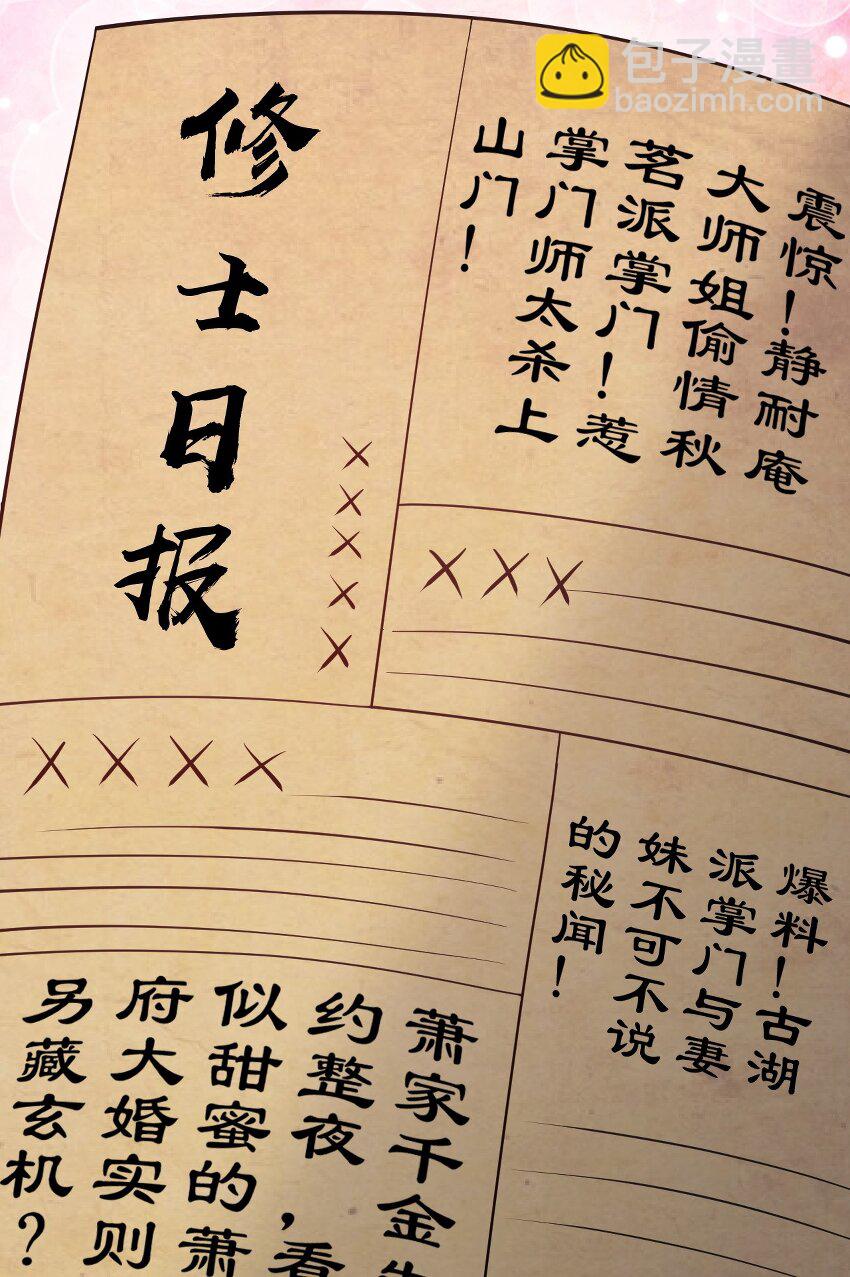 包子漫畫
baozimh.com
修士日报
×××××
震惊！静耐庵
大师姐偷情秋
茗派掌门！惹
掌门师太杀上
山门！
×××
××××
爆料！古湖
派掌门与妻
妹不可不说
的秘闻！
萧家千金
约整夜，看
似甜蜜的萧
府大婚实则
另藏玄机？